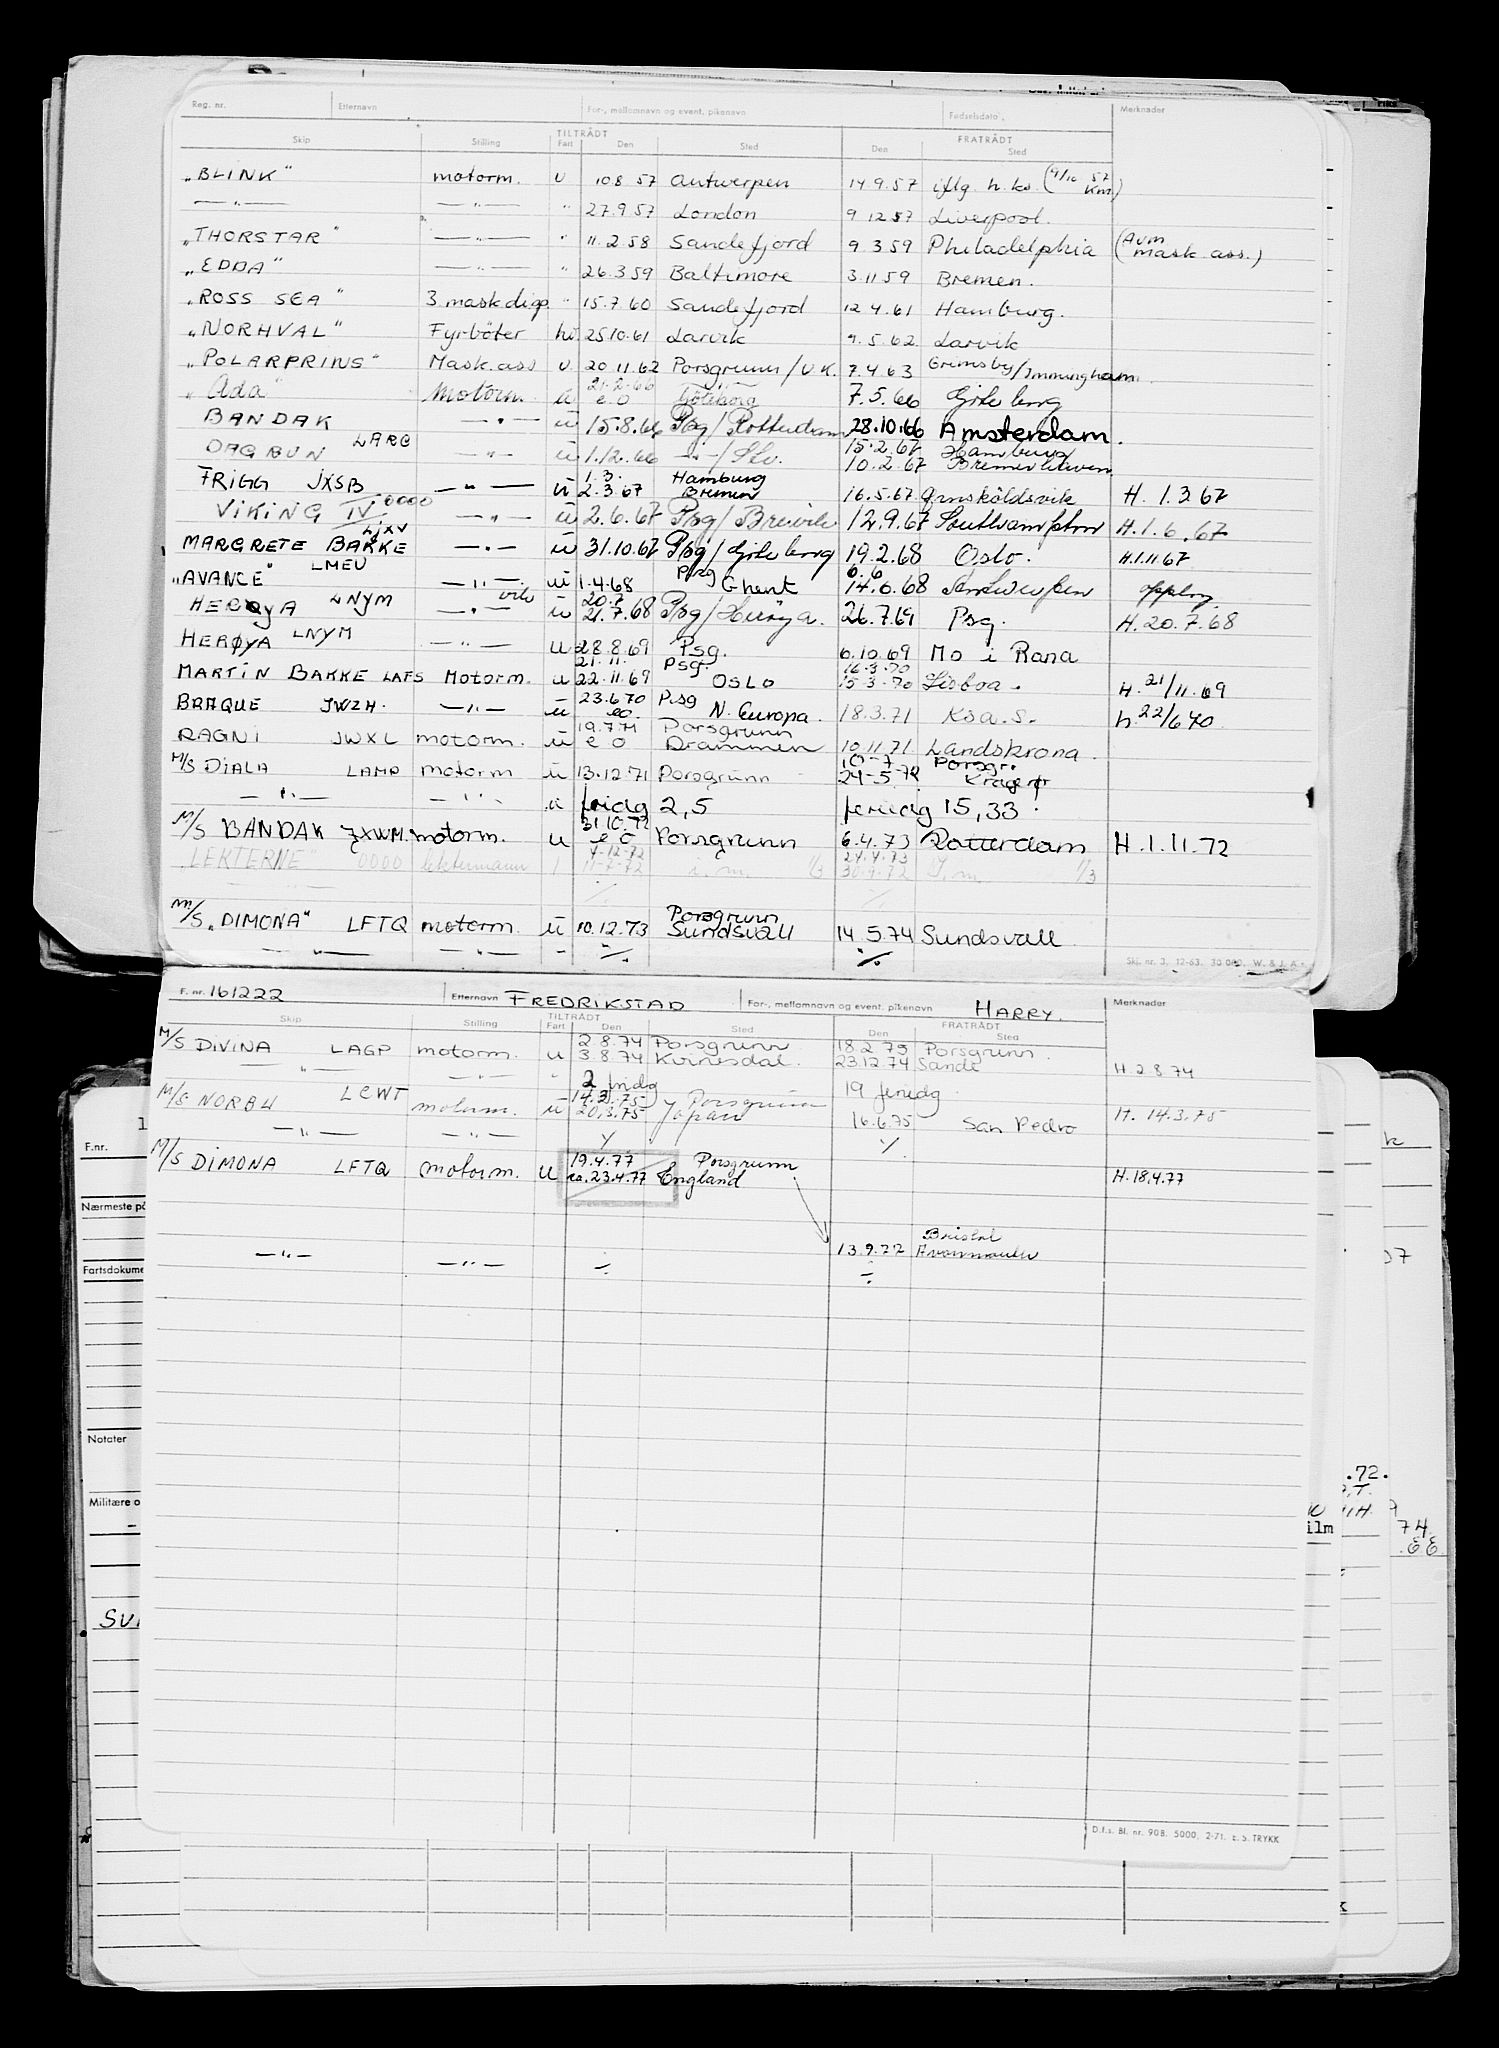 Reg. nr. Etternavn For-, mellomnavn og event. pikenavn Fødselsdato Merknader
TILTRÅDT FRATRÅDT
Skip Stilling Fart Den Sted Den Sted
"BLINK" motorm. u 10 8 57 Antwerpen 14.9.57 iflg. h. ks. (9/10 57 Km.)
—"— —"— " 27.9 57 London 9 12 57 Liverpool.
"THORSTAR" —"— " 11.2.58 Sandefjord 9.3 59 Philadelphia (Avm mask ass.)
"EDDA" —"— " 26.3 59 Baltimore 3.11 59 Bremen.
"ROSS SEA" 3 mask digp. " 15.7.60 Sandefjord 12 4.61 Hamburg.
"NORHVAL" Fyrbøter hv. 25.10.61 Larvik 9.5.62 Larvik
"POLARPRINS" Mask. ass u 20 11.62 Porsgrunn/U.K. 7.4.63 Grimsby/Immingham
"Ada" Motorm. u 21.2.66 e.o Göteborg 7.5.66 Göteborg
BANDAK —"— u 15.8.66 Psg/Rotterdam 28.10.66 Amsterdam.
DAGRUN LARG —"— u 1.12.66 —"—/Slv. 15.2.67 Hamburg
10.2.67 Bremerhaven
FRIGG JXSB —"— u 1.3. Hamburg
2.3.67 Bremen 16.5.67 Ørnsköldsvik H. 1.3 67
VIKING IV 0000 —"— u 2.6.67 Psg/Brevik 12.9.67 Southampton H.1.6.67
MARGRETE BAKKE LJXV —"— u 31.10.67 Psg/Göteborg 19.2.68 Oslo. H.1.11 67
"AVANCE" LMEU —"— u 1.4.68 Psg Ghent 6.6
14.6.68 Antwerpen oppbrg.
HERØYA LNYM —"— u 20.7
21.7.68 Psg/Herøya. 26.7.69 Psg. H.20.7.68
HERØYA LNYM —"— u 28.8.69 Psg. 6.10.69 Mo i Rana
MARTIN BAKKE LAFS Motorm. u 21.11. Psg.
22.11.69 OSLO 16.3.70
15.3.70 Lisboa. H. 21/11.69
BRAQUE JWZH. —"— u 23.6.70 Psg
eo. N. Europa. 18.3.71 Ks a. S. h. 22/6 70
RAGNI JWXL motorm. u 19.7.71 Porsgrunn
e o Drammen 10.11.71 Landskrona
M/S DIALA LAMP motorm u 13.12.71 Porsgrunn 10-7 Porsgr.
24-5.72 Kragerø
—"— —"— a fridg 2,5 feriedg 15,33
M/S BANDAK JXWM. motorm. u 31.10.72
e o Porsgrunn 6.4.73 Rotterdam H.1.11.72
"LEKTERNE" 0000 lektermann 1 7-12-72
11-7-72 i.m. 1/3 24.4.73
30.9.72 1/3
M/S "DIMONA" LFTQ motorm. u 10.12.73 Porsgrunn
Sundsvall 14 5.74 Sundsvall
—"— —"— - ./. ./.
Skj. nr. 3, 12-63. 30 000. W. & J. A.
F. nr. 161222 Etternavn FREDRIKSTAD For-, mellomnavn og event. pikenavn HARRY. Merknader
TILTRÅDT FRATRÅDT
Skip Stilling Fart Den Sted Den Sted
M/S DIVINA LAGP motorm. u 2.8.74 Porsgrunn
3.8.74 Kvinesdal. 18 2 75 Porsgrunn.
23.12.74 Sande H.2 8 74
—"— —"— " 2 fridg 19 feriedg
M/S NORBU LCWT motorm. u 14.3.75 Porsgrunn
20.3.75 Japan 16.6.75 San Pedro H. 14.3.75
—"— —"— ./. ./.
M/S DIMONA LFTQ motorm. u 19.4.77 Porsgrunn
ca. 23.4.77 England H.18.4.77
13.9.77 Bristol
Avonmouth
—"— —"— ./. ./.
D.f.s. Bl. nr. 90B. 5000, 2-71. E. S. TRYKK
F.nr.
Nærmeste på
Fartsdokume
Notater
Militære o
.72.
ilm
74.